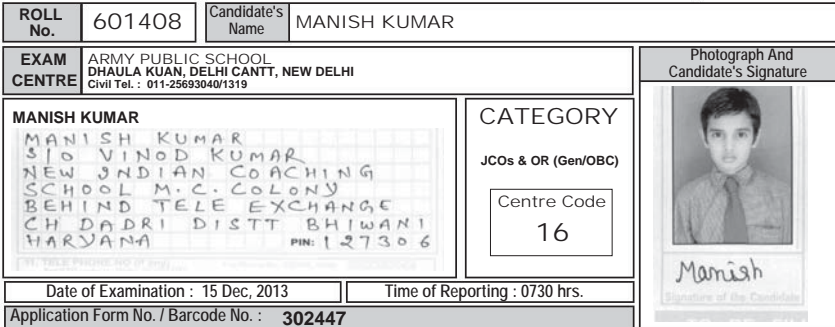 ROLL No. 601408 Candidate's Name MANISH KUMAR
EXAM CENTRE
ARMY PUBLIC SCHOOL
DHAULA KUAN, DELHI CANTT, NEW DELHI
Civil Tel. : 011-25693040/1319
Photograph And
Candidate's Signature
MANISH KUMAR
MANISH KUMAR
S/O VINOD KUMAR
NEW INDIAN COACHING
SCHOOL M.C. COLONY
BEHIND TELE EXCHANGE
CH DADRI DISTT BHIWANI
HARYANA PIN: 127306
CATEGORY
JCOs & OR (Gen/OBC)
Centre Code
16
Manish
Signature of the Candidate
Date of Examination : 15 Dec, 2013 Time of Reporting : 0730 hrs.
Application Form No. / Barcode No. : 302447